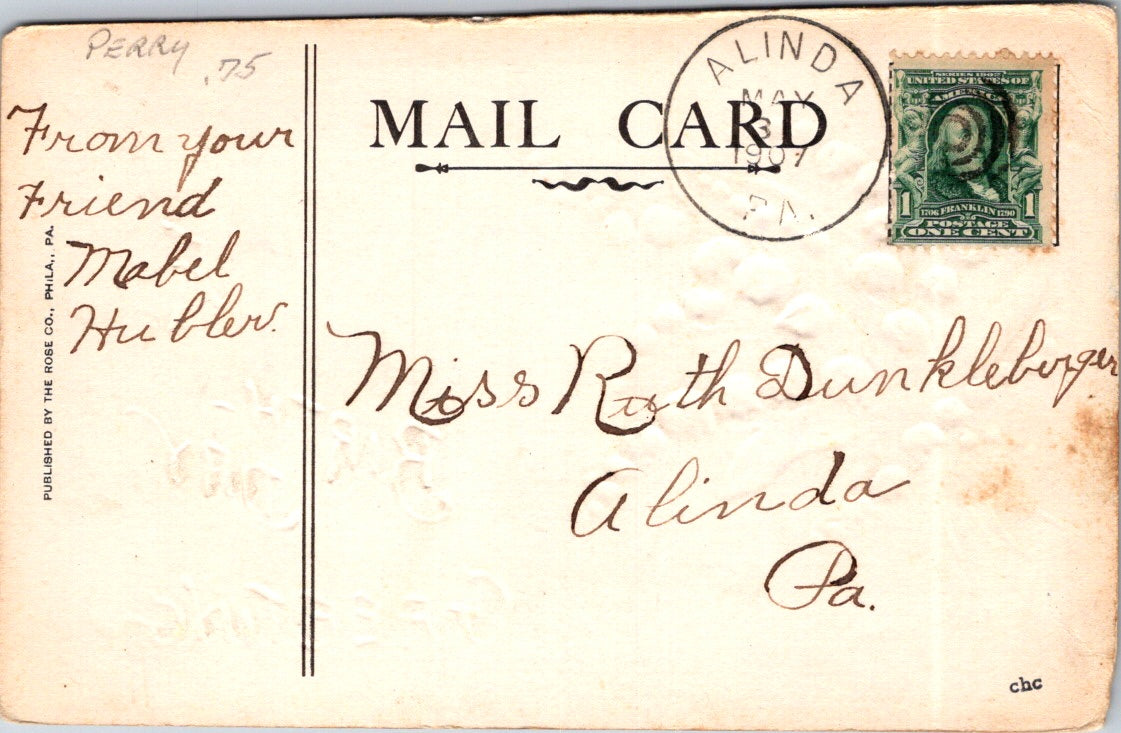 PERRY .75
From your
Friend
Mabel
Hubler.
PUBLISHED BY THE ROSE CO., PHILA., PA.
MAIL CARD
ALINDA
MAY
3
1907
PA.
SERIES 1902
UNITED STATES OF
AMERICA
1 1
1706 FRANKLIN 1790
POSTAGE
ONE CENT
Miss Ruth Dunkleberger
Alinda
Pa.
chc